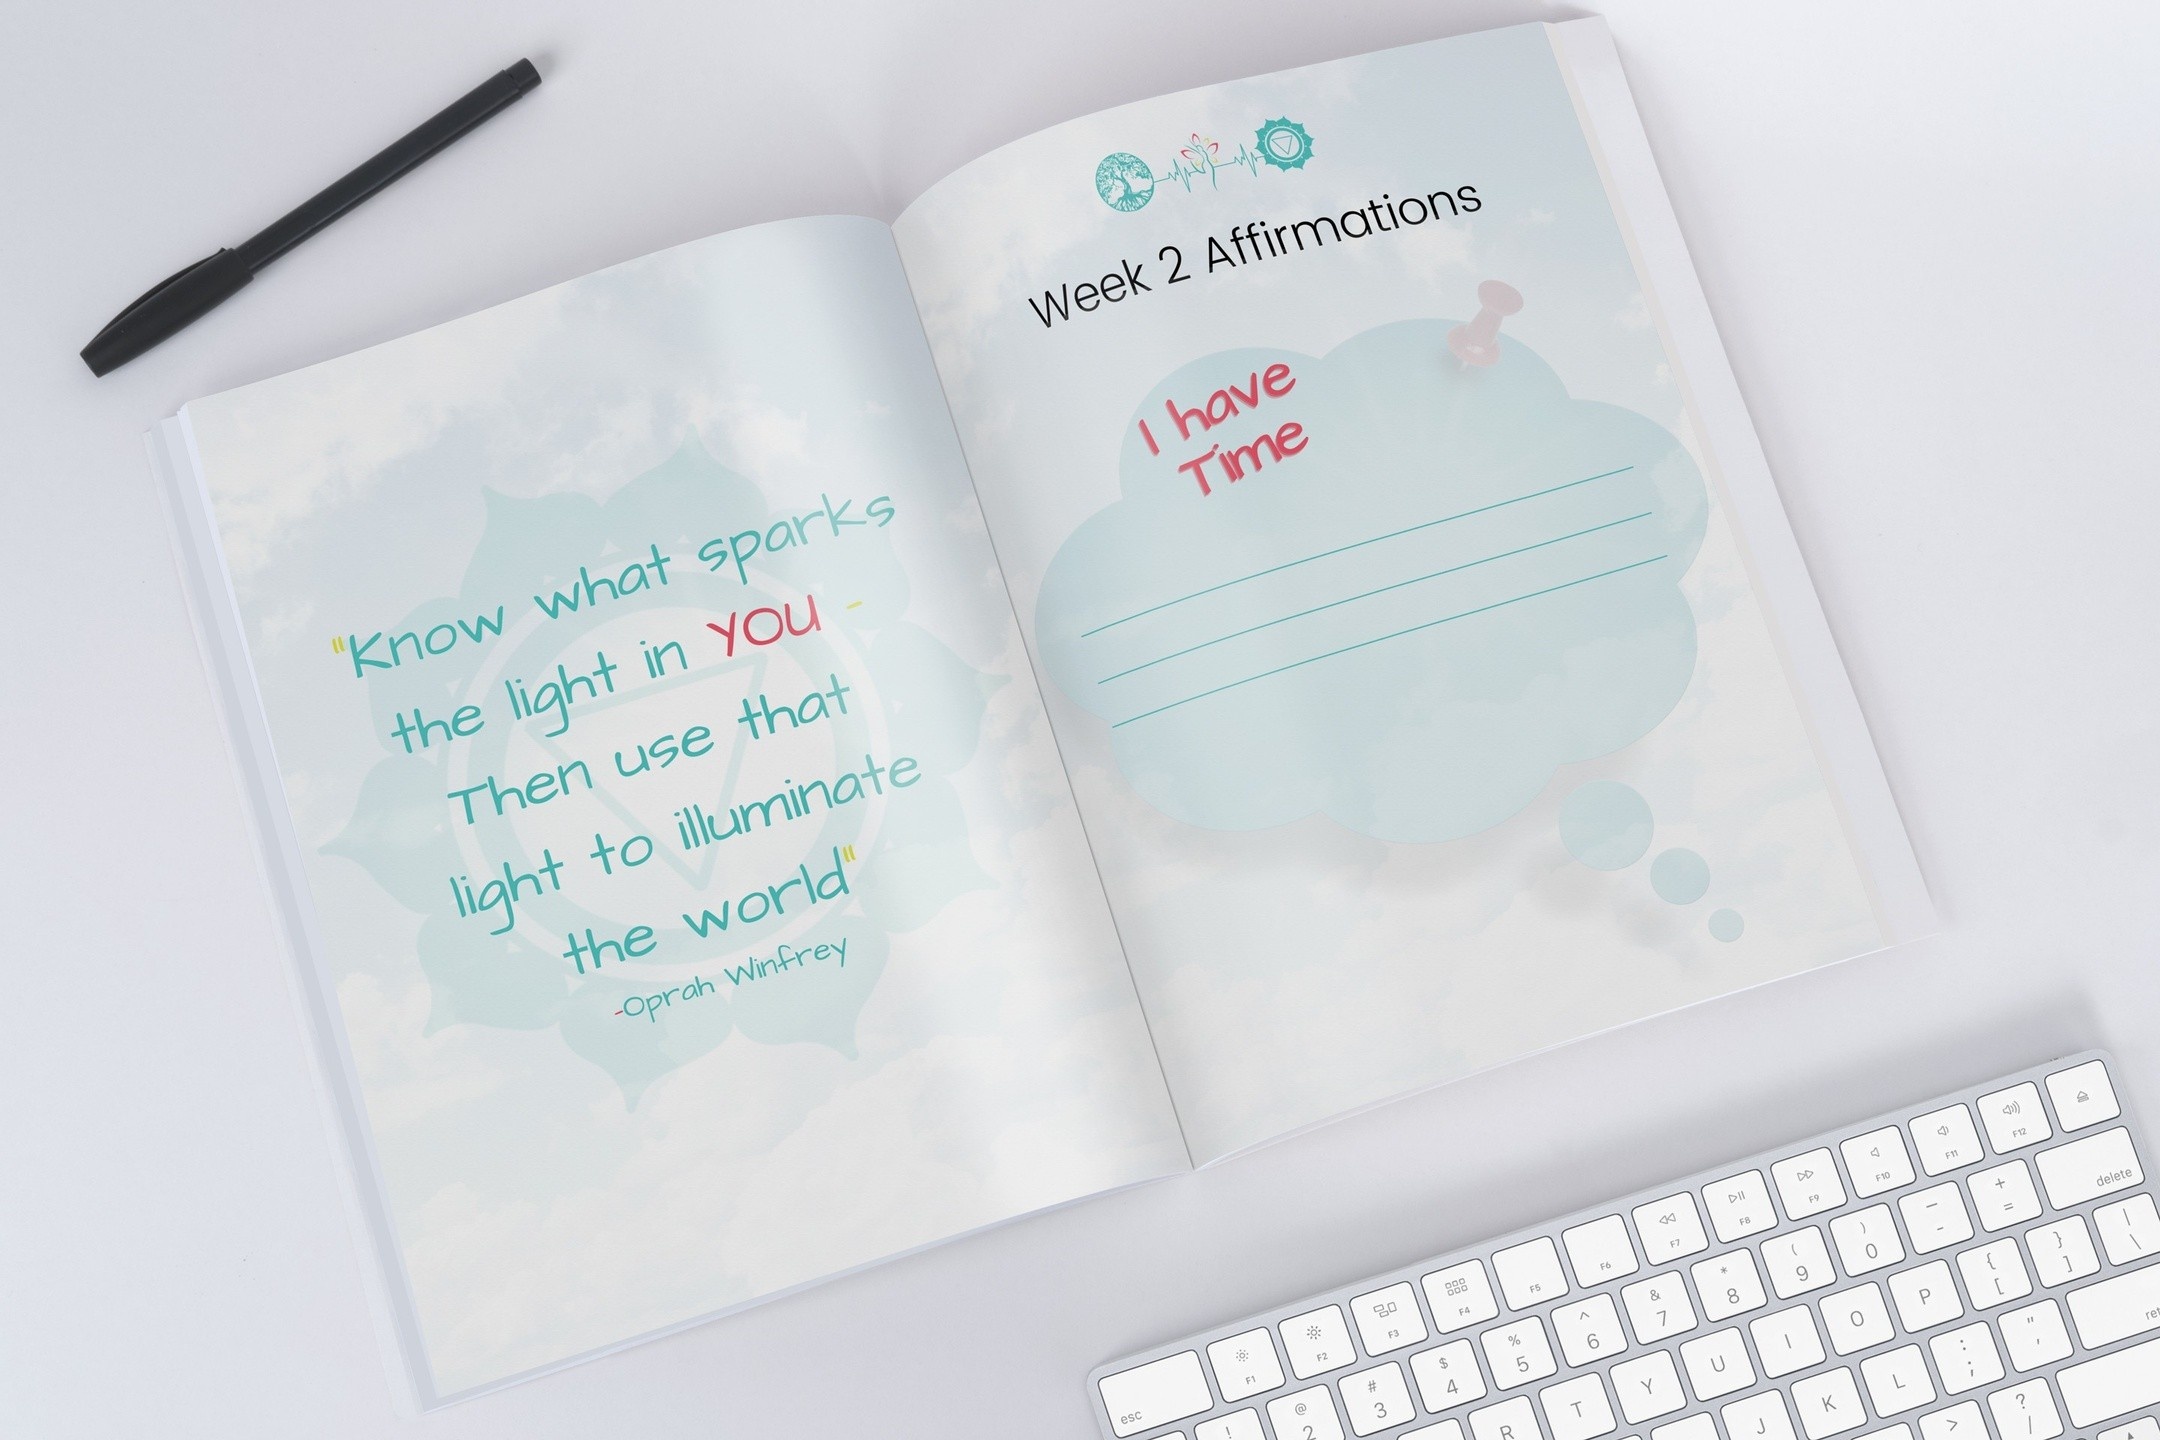 "Know what sparks
the light in YOU -
Then use that
light to illuminate
the world"
-Oprah Winfrey
Week 2 Affirmations
I have
Time
esc
F1
F2
F3
F4
F5
F6
F7
F8
F9
F10
F11
F12
!
@ 2
# 3
$ 4
% 5
^ 6
& 7
* 8
( 9
) 0
_ -
+ =
delete
R
T
Y
U
I
O
P
{ [
} ]
| \
J
K
L
: ;
" '
>
? /